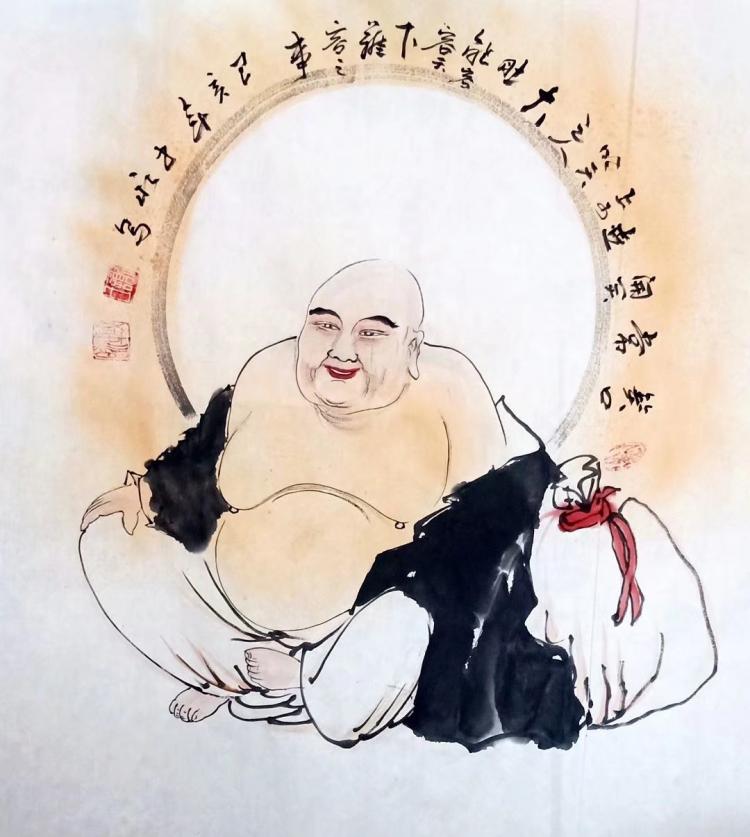 笑口常開笑世上可笑之人大肚能容容天下難容之事己亥年永寫